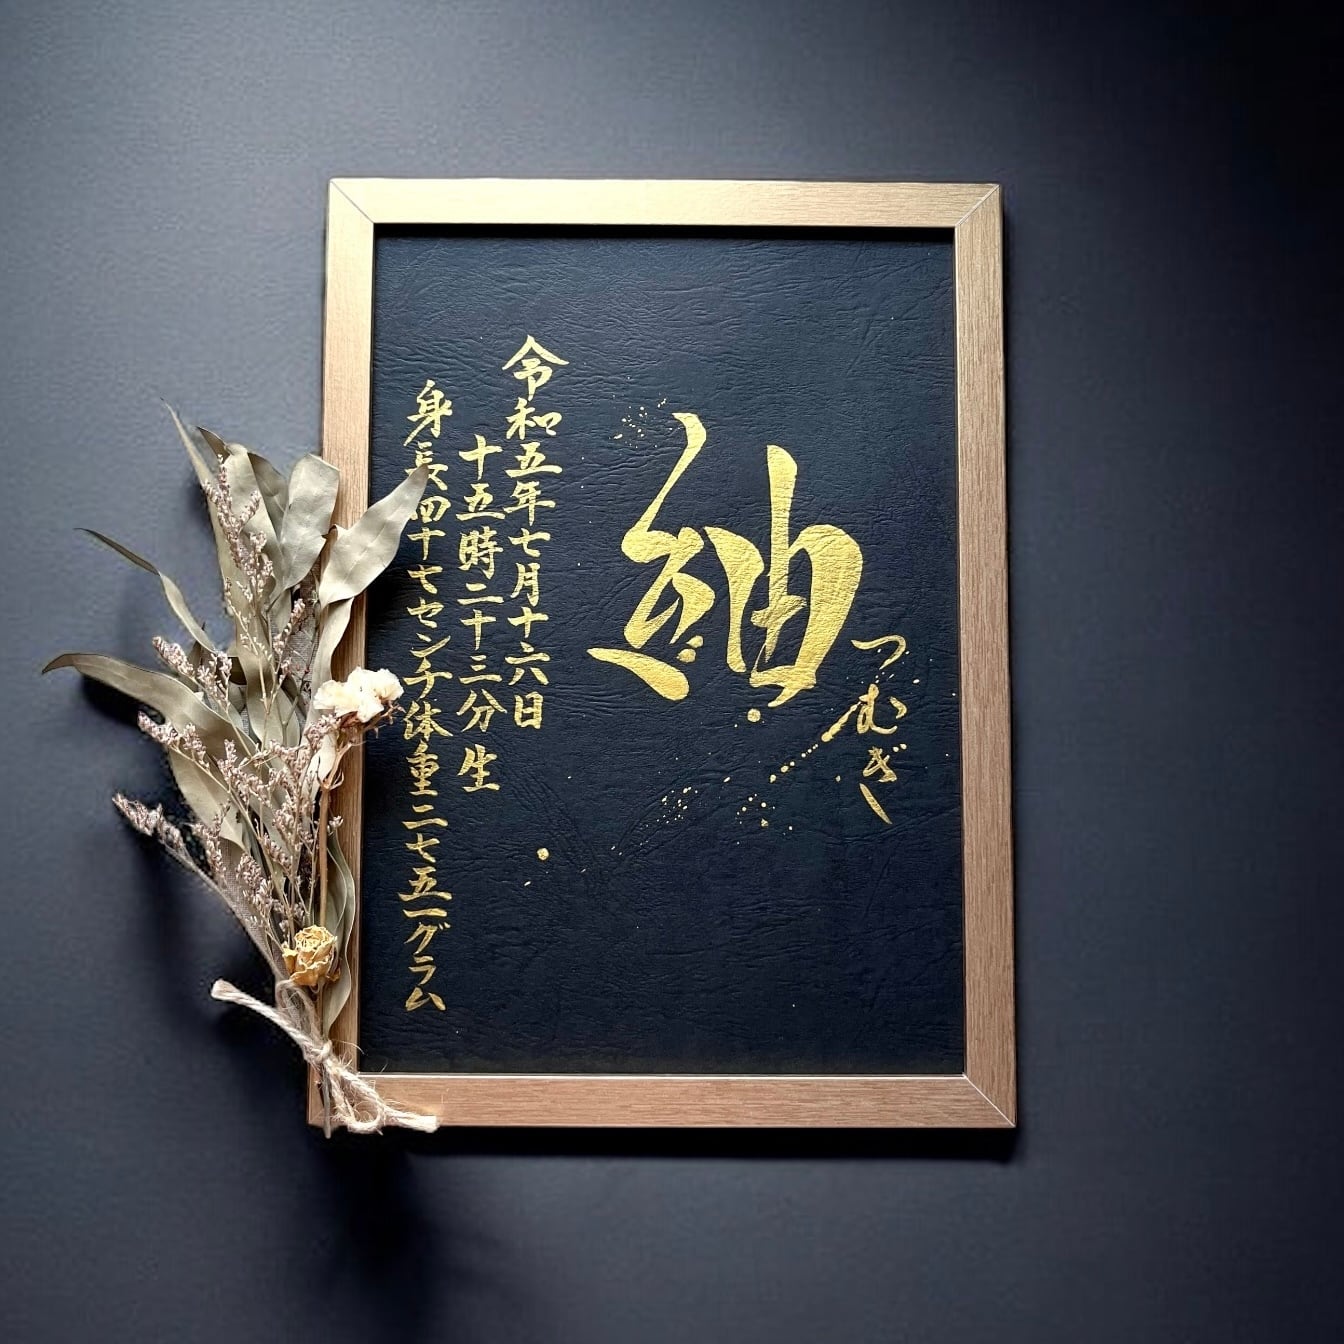 紬
つむぎ
令和五年七月十六日
十五時二十三分生
身長四十七センチ体重二七五一グラム